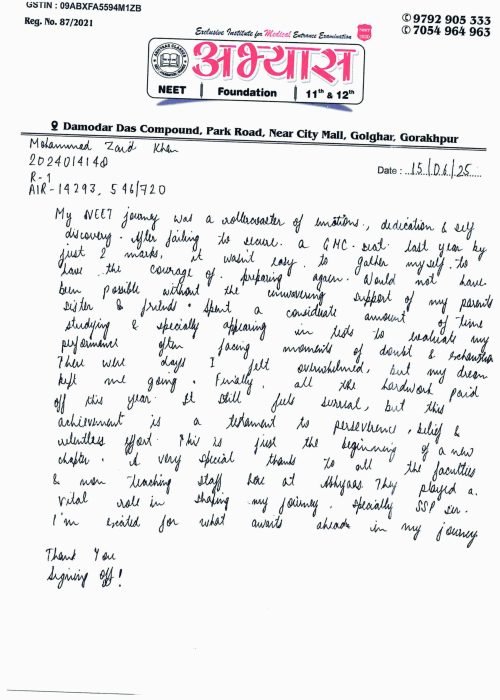 GSTIN : 09ABXFA5594M1ZB
Reg. No. 87/2021
✆ 9792 905 333
✆ 7054 964 963
Exclusive Institute for Medical Entrance Examination
अभ्यास
NEET | Foundation | 11th & 12th
Damodar Das Compound, Park Road, Near City Mall, Golghar, Gorakhpur
Mohammed Zaid Khan
Date : 15/06/25
R-1
AIR-14293, 546/720
My NEET journey was a rollercoaster of emotions, dedication & self
discovery. After failing to secure a GMC seat last year by
just 2 marks, it wasn't easy to gather myself to
have the courage of preparing again. Would not have
been possible without the unwavering support of my parents
sister & friends. Spent a considerate amount of time
studying & specially appearing in tests to evaluate my
performance often facing moments of doubt & exhaustion
There were days I felt overwhelmed, but my dream
kept me going. Finally, all the hardwork paid
off this year. It still feels surreal, but this
achievement is a testament to perseverence, belief &
relentless effort. This is just the beginning of a new
chapter. A very special thanks to all the faculties
& non teaching staff here at Abhyaas. They played a
vital role in shaping my journey. Specially SSP sir.
I'm excited for what awaits ahead in my journey
Thank You
Signing off!